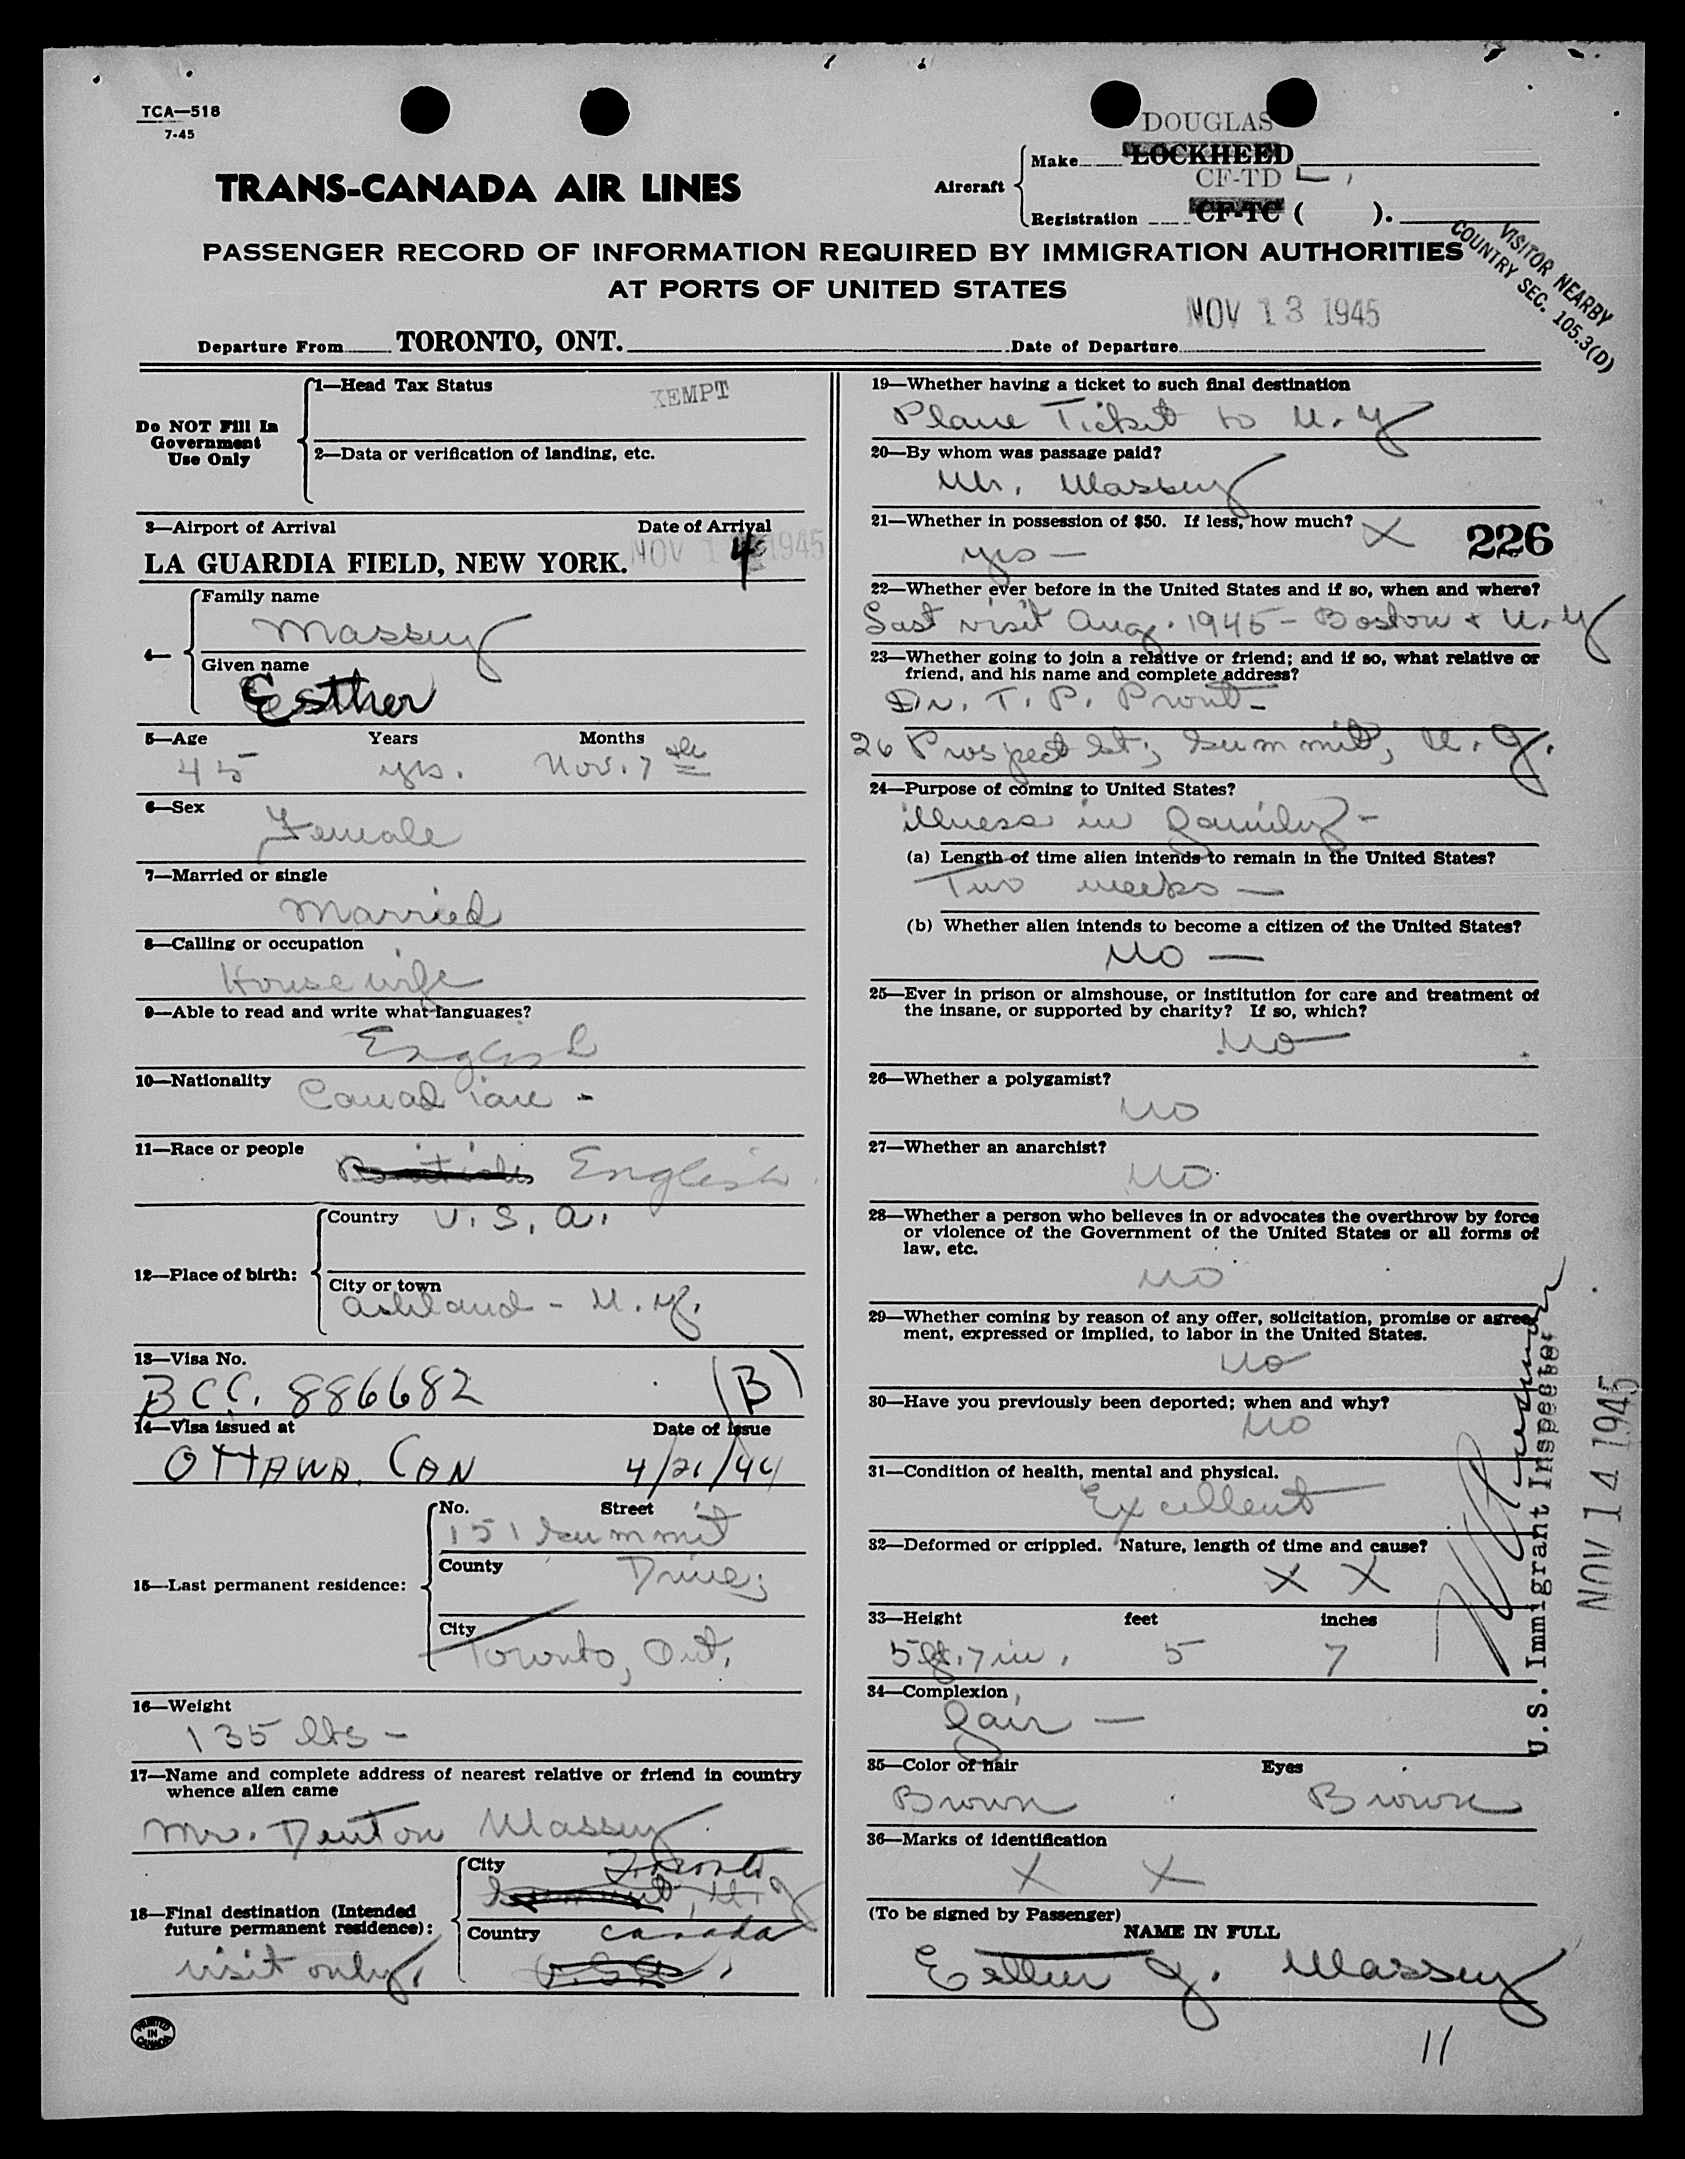 TCA—518
7-45
DOUGLAS
Make LOCKHEED
TRANS-CANADA AIR LINES
Aircraft
CF-TD L
Registration CF-TC ( ).
PASSENGER RECORD OF INFORMATION REQUIRED BY IMMIGRATION AUTHORITIES
AT PORTS OF UNITED STATES
VISITOR NEARBY
COUNTRY SEC. 105.3(D)
NOV 13 1945
Departure From TORONTO, ONT. Date of Departure
Do NOT Fill In
Government
Use Only
1—Head Tax Status
XEMPT
2—Data or verification of landing, etc.
3—Airport of Arrival Date of Arrival
LA GUARDIA FIELD, NEW YORK. NOV 14 1945
Family name
Massey
4—
Given name
Esther
5—Age Years Months
45 yrs. Nov. 7th
6—Sex
Female
7—Married or single
Married
8—Calling or occupation
Housewife
9—Able to read and write what languages?
English
10—Nationality
Canadian -
11—Race or people
British English
12—Place of birth:
Country U.S.A.
City or town
Ashland - N.Y.
13—Visa No.
BCC. 886682 (B)
14—Visa issued at Date of issue
OTTAWA. CAN 4/21/44
15—Last permanent residence:
No. Street
151 Summit
County Drive,
City
Toronto, Ont.
16—Weight
135 lbs -
17—Name and complete address of nearest relative or friend in country
whence alien came
Mr. Denton Massey
18—Final destination (Intended
future permanent residence):
visit only.
City Toronto
Summit, N.J.
Country Canada
U.S.A.
PRINTED
IN
CANADA
19—Whether having a ticket to such final destination
Plane Ticket to N.Y
20—By whom was passage paid?
Mr. Massey
21—Whether in possession of $50. If less, how much? X
yes —
226
22—Whether ever before in the United States and if so, when and where?
Last visit Aug. 1945 - Boston + N.Y
23—Whether going to join a relative or friend; and if so, what relative or
friend, and his name and complete address?
Dr. T. P. Prout -
26 Prospect St., Summit, N.J.
24—Purpose of coming to United States?
illness in family -
(a) Length of time alien intends to remain in the United States?
Two weeks —
(b) Whether alien intends to become a citizen of the United States?
No —
25—Ever in prison or almshouse, or institution for care and treatment of
the insane, or supported by charity? If so, which?
No
26—Whether a polygamist?
No
27—Whether an anarchist?
No
28—Whether a person who believes in or advocates the overthrow by force
or violence of the Government of the United States or all forms of
law, etc.
No
29—Whether coming by reason of any offer, solicitation, promise or agree-
ment, expressed or implied, to labor in the United States.
No
30—Have you previously been deported; when and why?
No
31—Condition of health, mental and physical.
Excellent
32—Deformed or crippled. Nature, length of time and cause?
X X
33—Height feet inches
5 ft. 7 in. 5 7
34—Complexion
fair —
35—Color of hair Eyes
Brown Brown
36—Marks of identification
X X
(To be signed by Passenger)
NAME IN FULL
Esther J. Massey
11
U.S. Immigrant Inspector
NOV 14 1945